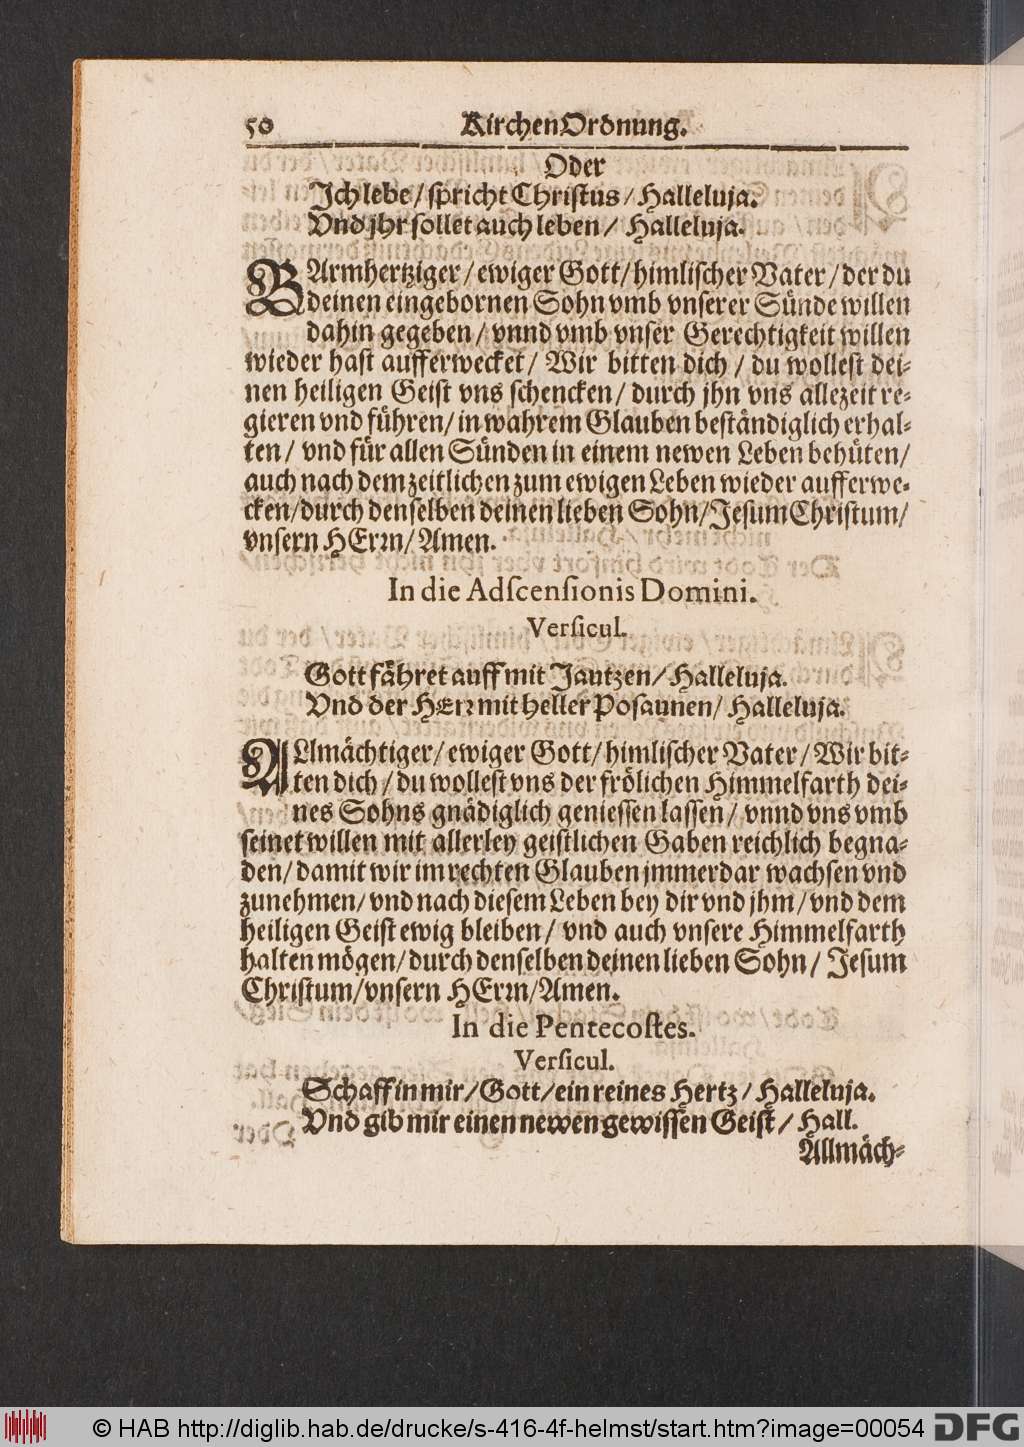 50 KirchenOrdnung.
Oder
Ich lebe / spricht Christus / Halleluja.
Vnd jhr sollet auch leben / Halleluja.
BArmhertziger / ewiger Gott / himlischer Vater / der du
deinen eingebornen Sohn vmb vnserer Sünde willen
dahin gegeben / vnnd vmb vnser Gerechtigkeit willen
wieder hast aufferwecket / Wir bitten dich / du wollest dei-
nen heiligen Geist vns schencken / durch jhn vns allezeit re-
gieren vnd führen / in wahrem Glauben beständiglich erhal-
ten / vnd für allen Sünden in einem newen Leben behüten /
auch nach dem zeitlichen zum ewigen Leben wieder aufferwe-
cken / durch denselben deinen lieben Sohn / Jesum Christum /
vnsern HErrn / Amen.
In die Adſcenſionis Domini.
Verſicul.
Gott fähret auff mit Jautzen / Halleluja.
Vnd der HErr mit heller Posaunen / Halleluja.
ALlmächtiger / ewiger Gott / himlischer Vater / Wir bit-
ten dich / du wollest vns der frölichen Himmelfarth dei-
nes Sohns gnädiglich geniessen lassen / vnnd vns vmb
seinet willen mit allerley geistlichen Gaben reichlich begna-
den / damit wir im rechten Glauben jmmerdar wachsen vnd
zunehmen / vnd nach diesem Leben bey dir vnd jhm / vnd dem
heiligen Geist ewig bleiben / vnd auch vnsere Himmelfarth
halten mögen / durch denselben deinen lieben Sohn / Jesum
Christum / vnsern HErrn / Amen.
In die Pentecoſtes.
Verſicul.
Schaff in mir / Gott / ein reines Hertz / Halleluja.
Vnd gib mir einen newen gewissen Geist / Hall.
Allmäch-
© HAB http://diglib.hab.de/drucke/s-416-4f-helmst/start.htm?image=00054 DFG